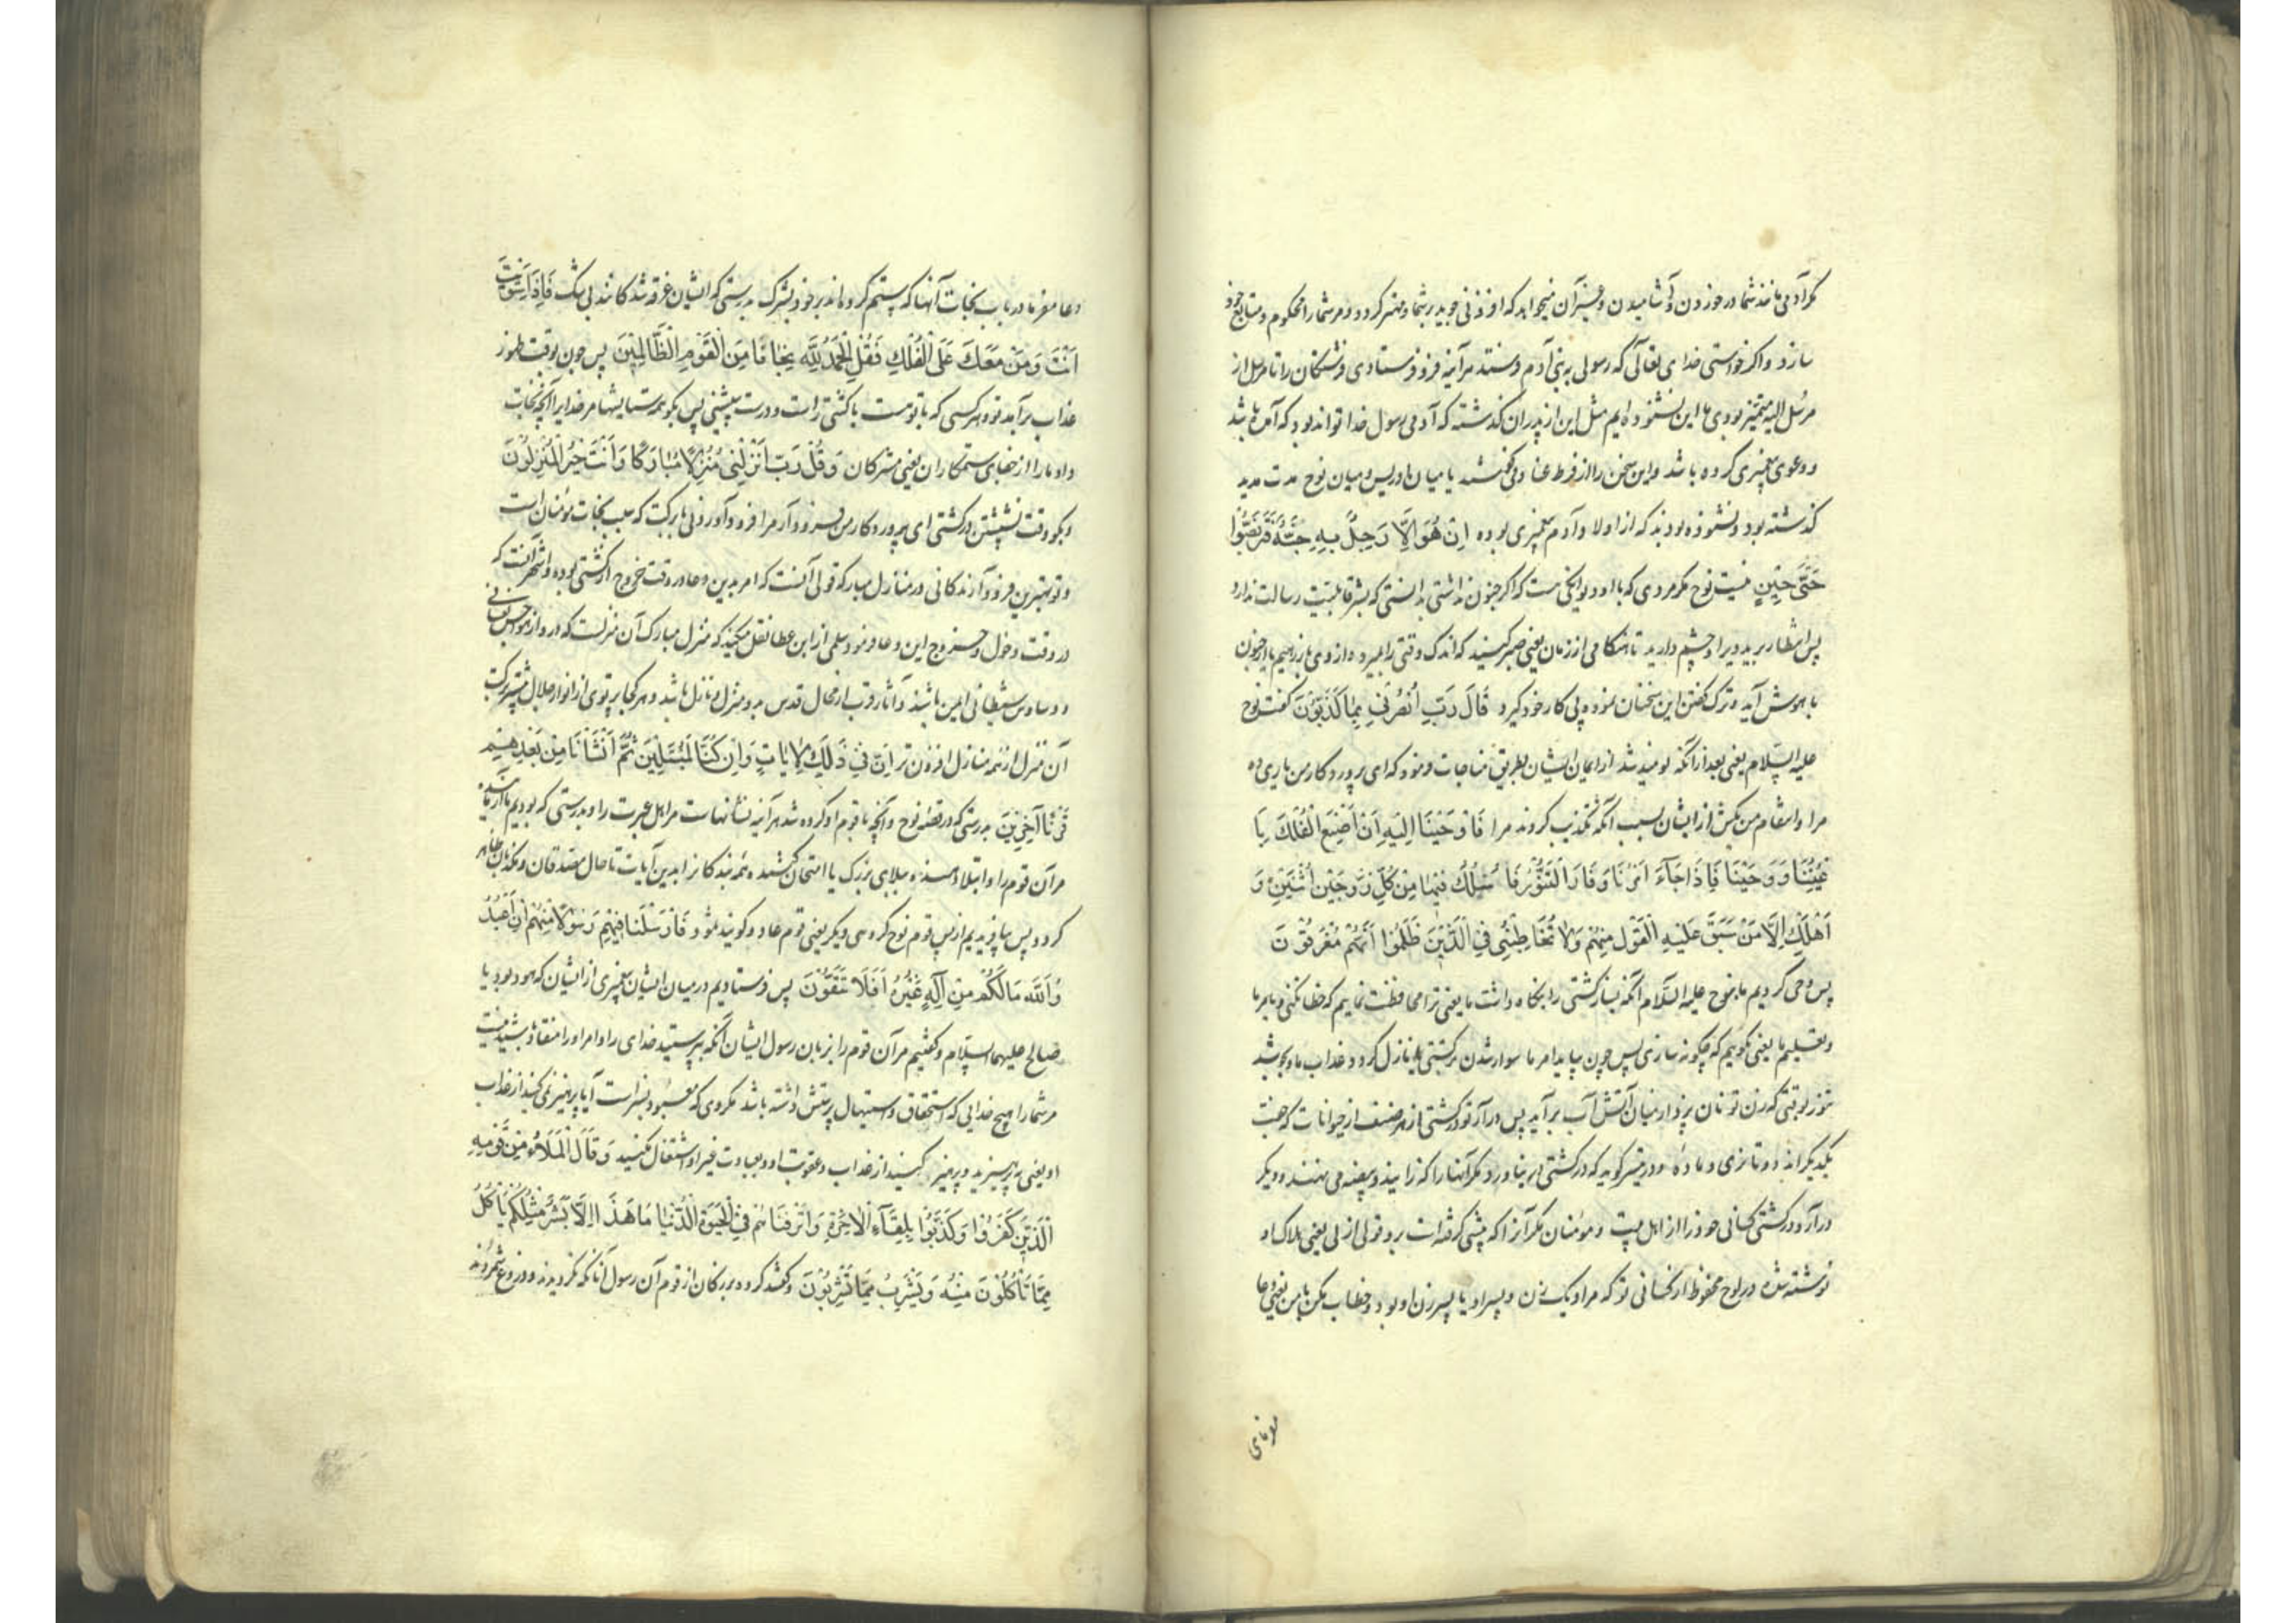 مگر آدمی مانند شما در خوردن و آشامیدن و غیر آن میخواهد که افزونی جوید بر شما و مهتر گردد و مر شما را محکوم و متابع خود
سازد و اگر خواستی خدای تعالی که رسولی به بنی آدم فرستد هرآینه فرو فرستادی فرشتگان را تا مرسل از
مرسل الیه متمیز بودی ما این نشنوده ایم مثل این از پدران گذشته که آدمی رسول خدا تواند بود که آمده باشد
و دعوی پیغمبری کرده باشد و این سخن را از فرط عناد می گفتند یا میان ادریس و میان نوح مدت مدید
گذشته بود و نشنوده بودند که از اولاد آدم پیغمبری بوده اِنْ هُوَ اِلَّا رَجُلٌ بِهِ جِنَّةٌ فَتَرَبَّصُوا
حَتَّى حِينٍ نیست نوح مگر مردی که با او دیوانگی هست که اگر جنون نداشتی بدانستی که بشر قابلیت رسالت ندارد
پس انتظار برید ویرا و چشم دارید تا هنگامی از زمان یعنی صبر کنید که اندک وقتی را بمیرد و از وی باز رهیم یا از جنون
با هوش آید و ترک گفتن این سخنان نموده پی کار خود گیرد قَالَ رَبِّ انْصُرْنِي بِمَا كَذَّبُونَ گفت نوح
علیه السلام یعنی بعد از آنکه نومید شد از ایمان ایشان بطریق مناجات فرمود که ای پروردگار من یاری ده
مرا و انتقام من بکش از ایشان بسبب آنکه تکذیب کردند مرا فَاَوْحَيْنَا اِلَيْهِ اَنْ اصْنَعِ الْفُلْكَ بِاَ
عْيُنِنَا وَوَحْيِنَا فَاِذَا جَآءَ اَمْرُنَا وَفَارَ التَّنُّورُ فَاسْلُكْ فِيهَا مِنْ كُلٍّ زَوْجَيْنِ اثْنَيْنِ وَ
اَهْلَكَ اِلَّا مَنْ سَبَقَ عَلَيْهِ الْقَوْلُ مِنْهُمْ وَلَا تُخَاطِبْنِي فِي الَّذِينَ ظَلَمُوا اِنَّهُمْ مُغْرَقُونَ
پس وحی کردیم ما بنوح علیه السلام آنکه بساز کشتی را بنگاه داشت ما یعنی ترا محافظت نماییم که خطا نکنی و بامر ما
و تعلیم ما یعنی بگوییم که چگونه سازی پس چون بیاید امر ما سوار شدن بر کشتی یا نازل گردد عذاب ما و بجوشد
تنور بوقتی که زن تو نان پزد از میان آتش آب برآید پس درآر تو در کشتی از هر صنف از حیوانات که جفت
یکدیگراند دو تا نری و ماده و در تیسیر گوید که در کشتی در نیاورد مگر آنها را که زایند و بیضه می نهند و دیگر
درآر در کشتی کسانی خود را از اهل بیت و مؤمنان مگر آنرا که پیشی گرفته است برو قول ازلی یعنی هلاک او
نوشته شده در لوح محفوظ از کسانی تو که مراد یک زن و پسر او یا پسر زن او بود و خطاب مکن با من یعنی دعا
دعا مفرما در باب نجات آنها که ستم کرده اند بر خود بشرک بدرستی که ایشان غرقه شدگانند بی شک فَاِذَا اسْتَوَيْتَ
اَنْتَ وَمَنْ مَعَكَ عَلَى الْفُلْكِ فَقُلِ الْحَمْدُ لِلَّهِ نَجّٰانَا مِنَ الْقَوْمِ الظَّالِمِينَ پس چون بوقت ظهور
عذاب برآید تو و هر کسی که با تو هست با کشتی راست و درست بنشینی پس بگو همه ستایشها مر خدایرا آنکه نجات
داد ما را از جفای ستمکاران یعنی مشرکان وَقُلْ رَبِّ اَنْزِلْنِي مُنْزَلًا مُبَارَكًا وَاَنْتَ خَيْرُ الْمُنْزِلُونَ
و بگو وقت نشستن در کشتی ای پروردگار من فرود آر مرا فرود آوردنی با برکت که سبب نجات مؤمنان است
و تو بهترین فرود آرندگانی در منازل مبارکه قولی آنست که امر بدین دعا در وقت خروج از کشتی بوده و اشهر آنست که
در وقت دخول و خروج این دعا فرمود سلمی از ابن عطا نقل میکند که منزل مبارک آن منزلست که در و از هواجس نفسانی
و وساوس شیطانی ایمن باشند و آثار قرب از محال قدس بدو منزل و نازل باشد و هر کجا پرتوی از انوار جلال بیشتر برکت
آن منزل از همه منازل افزون تر اِنَّ فِي ذَلِكَ لَاٰيَاتٍ وَاِنْ كُنَّا لَمُبْتَلِينَ ثُمَّ اَنْشَأْنَا مِنْ بَعْدِهِمْ
قَرْنًا آخَرِينَ بدرستی که در قصه نوح و آنچه با قوم او کرده شد هرآینه نشانهاست مر اهل عبرت را و بدرستی که بودیم ما آزماینده
مر آن قوم را و ابتلا دهنده ببلای بزرگ یا امتحان کننده همه بندگانرا بدین آیات تا حال مصدقان و مکذبان ظاهر
گردد پس بیافریدیم از پس قوم نوح گروهی دیگر یعنی قوم عاد و گویند ثمود فَاَرْسَلْنَا فِيهِمْ رَسُولًا مِنْهُمْ اَنِ اعْبُدُ
وُا اللَّهَ مَا لَكُمْ مِنْ اِلَهٍ غَيْرُهُ اَفَلَا تَتَّقُونَ پس فرستادیم در میان ایشان پیغمبری از ایشان که هود بود یا
صالح علیهما السلام و گفتیم مر آن قوم را بزبان رسول ایشان آنکه بپرستید خدای را و امر او را منقاد باشید نیست
مر شما را هیچ خدایی که استحقاق و استیهال پرستش داشته باشد مگر وی که معبود بسزاست آیا پرهیز نمی کنید از عذاب
او یعنی بپرهیزید و پرهیز کنید از عذاب و عقوبت او و بعبادت غیر او اشتغال مکنید وَقَالَ الْمَلَاُ مِنْ قَوْمِهِ
الَّذِينَ كَفَرُوا وَكَذَّبُوا بِلِقَآءِ الْاٰخِرَةِ وَاَتْرَفْنَاهُمْ فِي الْحَيٰوةِ الدُّنْيَا مَا هَذَا اِلَّا بَشَرٌ مِثْلُكُمْ يَأْكُلُ
مِمَّا تَأْكُلُونَ مِنْهُ وَيَشْرَبُ مِمَّا تَشْرَبُونَ و گفتند گروه بزرگان از قوم آن رسول آنانکه نگرویدند و دروغ شمردند